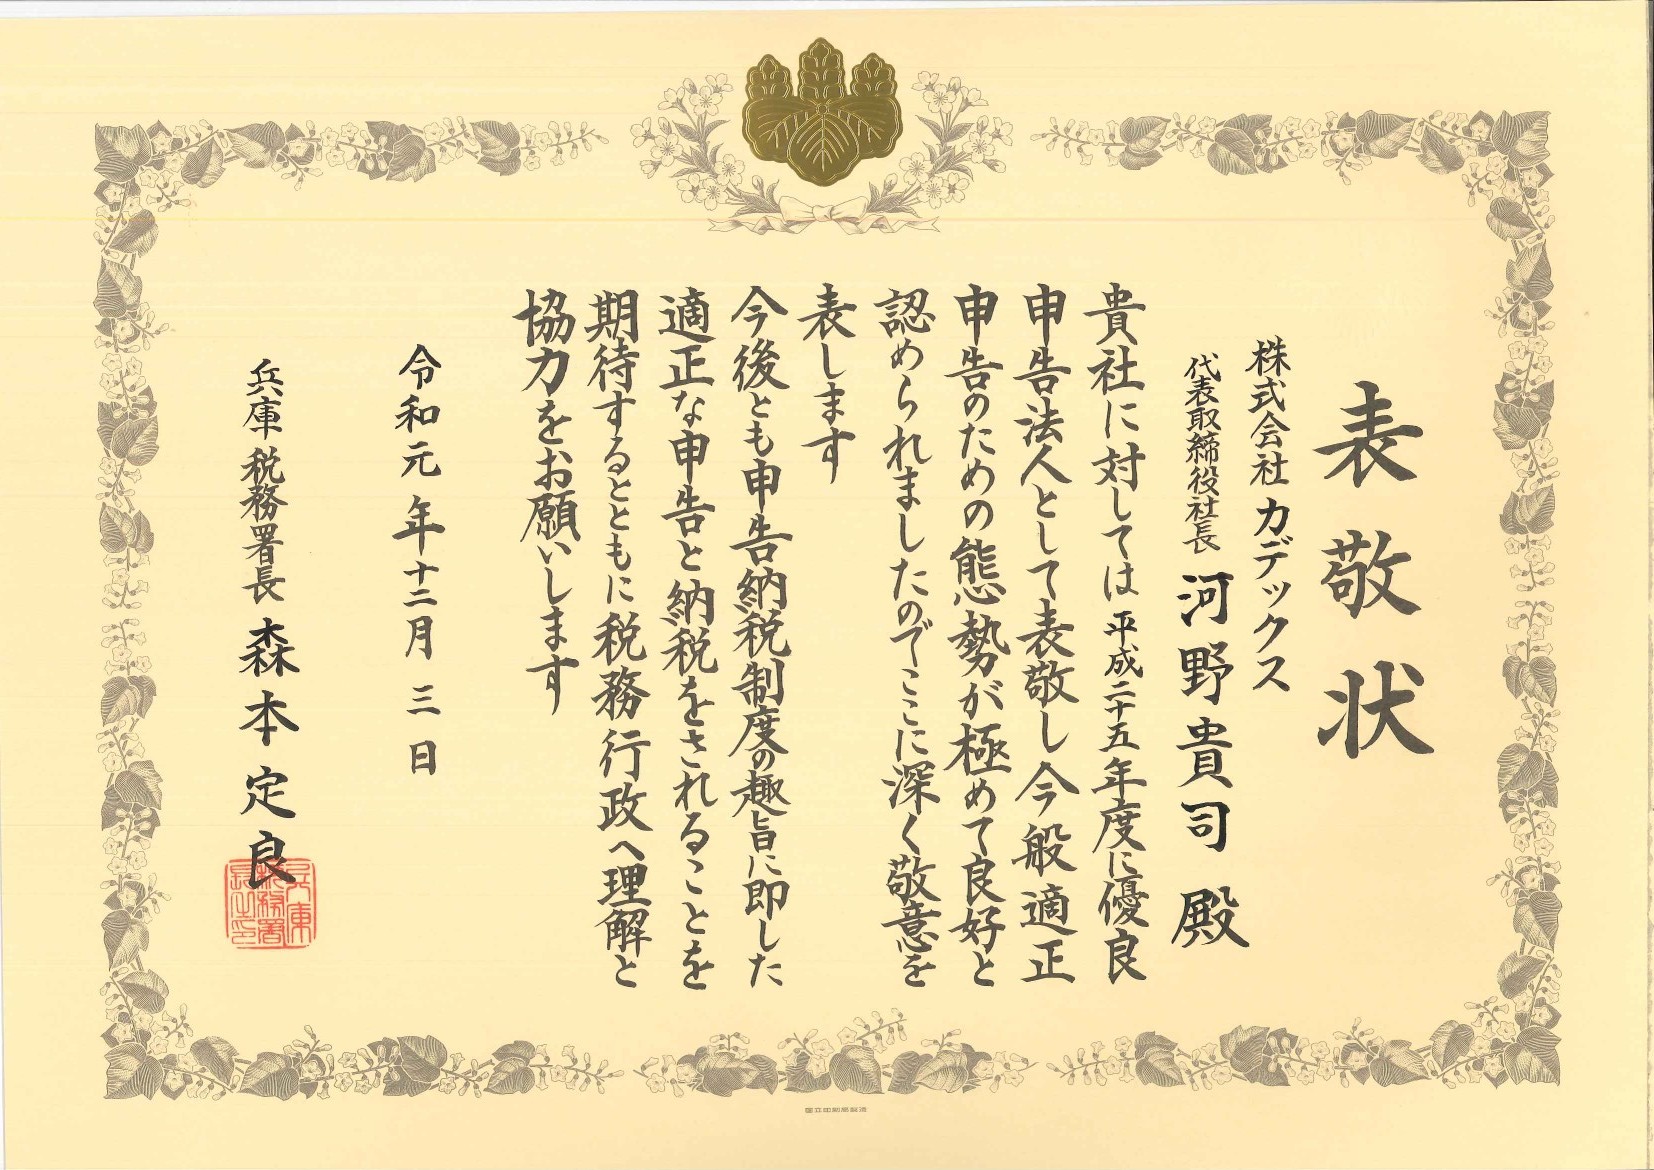 表敬状
株式会社 カデックス
代表取締役社長 河野貴司 殿
貴社に対しては平成二十五年度に優良
申告法人として表敬し今般適正
申告のための態勢が極めて良好と
認められましたのでここに深く敬意を
表します
今後とも申告納税制度の趣旨に即した
適正な申告と納税をされることを
期待するとともに税務行政へ理解と
協力をお願いします
令和元年十二月 三 日
兵庫税務署長 森本定良
兵庫税務署長之印
国立印刷局製造